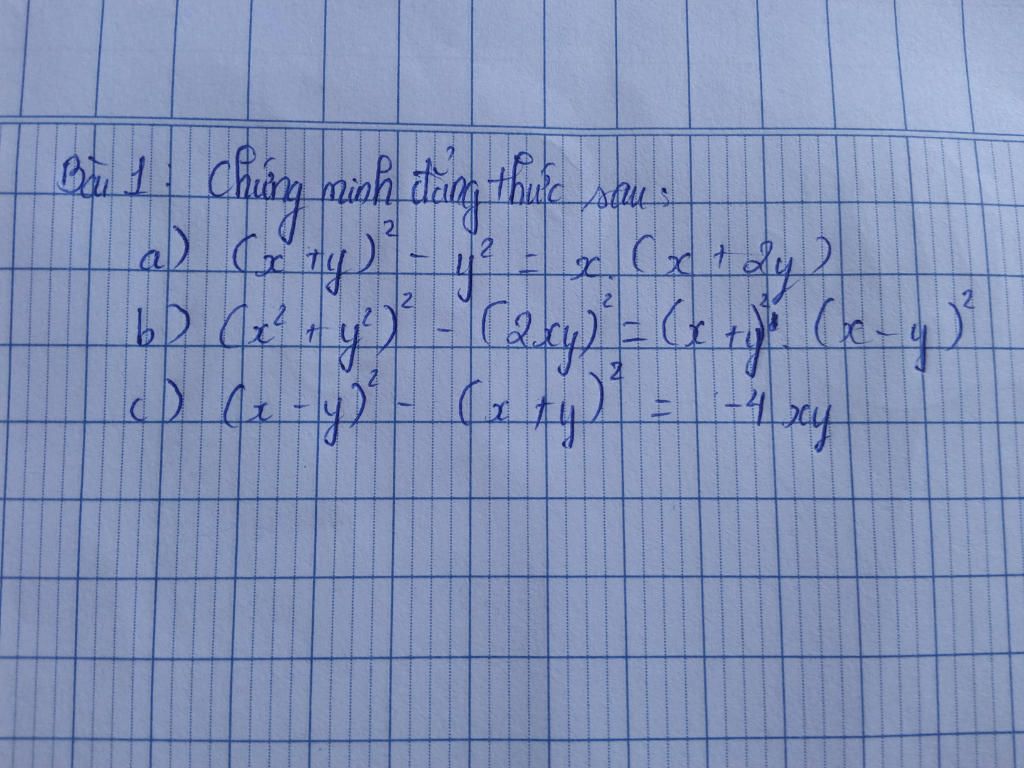 Bài 1: Chứng minh đẳng thức sau:
a) (x + y)² - y² = x. (x + 2y)
b) (x² + y²)² - (2xy)² = (x + y)². (x - y)²
c) (x - y)² - (x + y)² = -4 xy